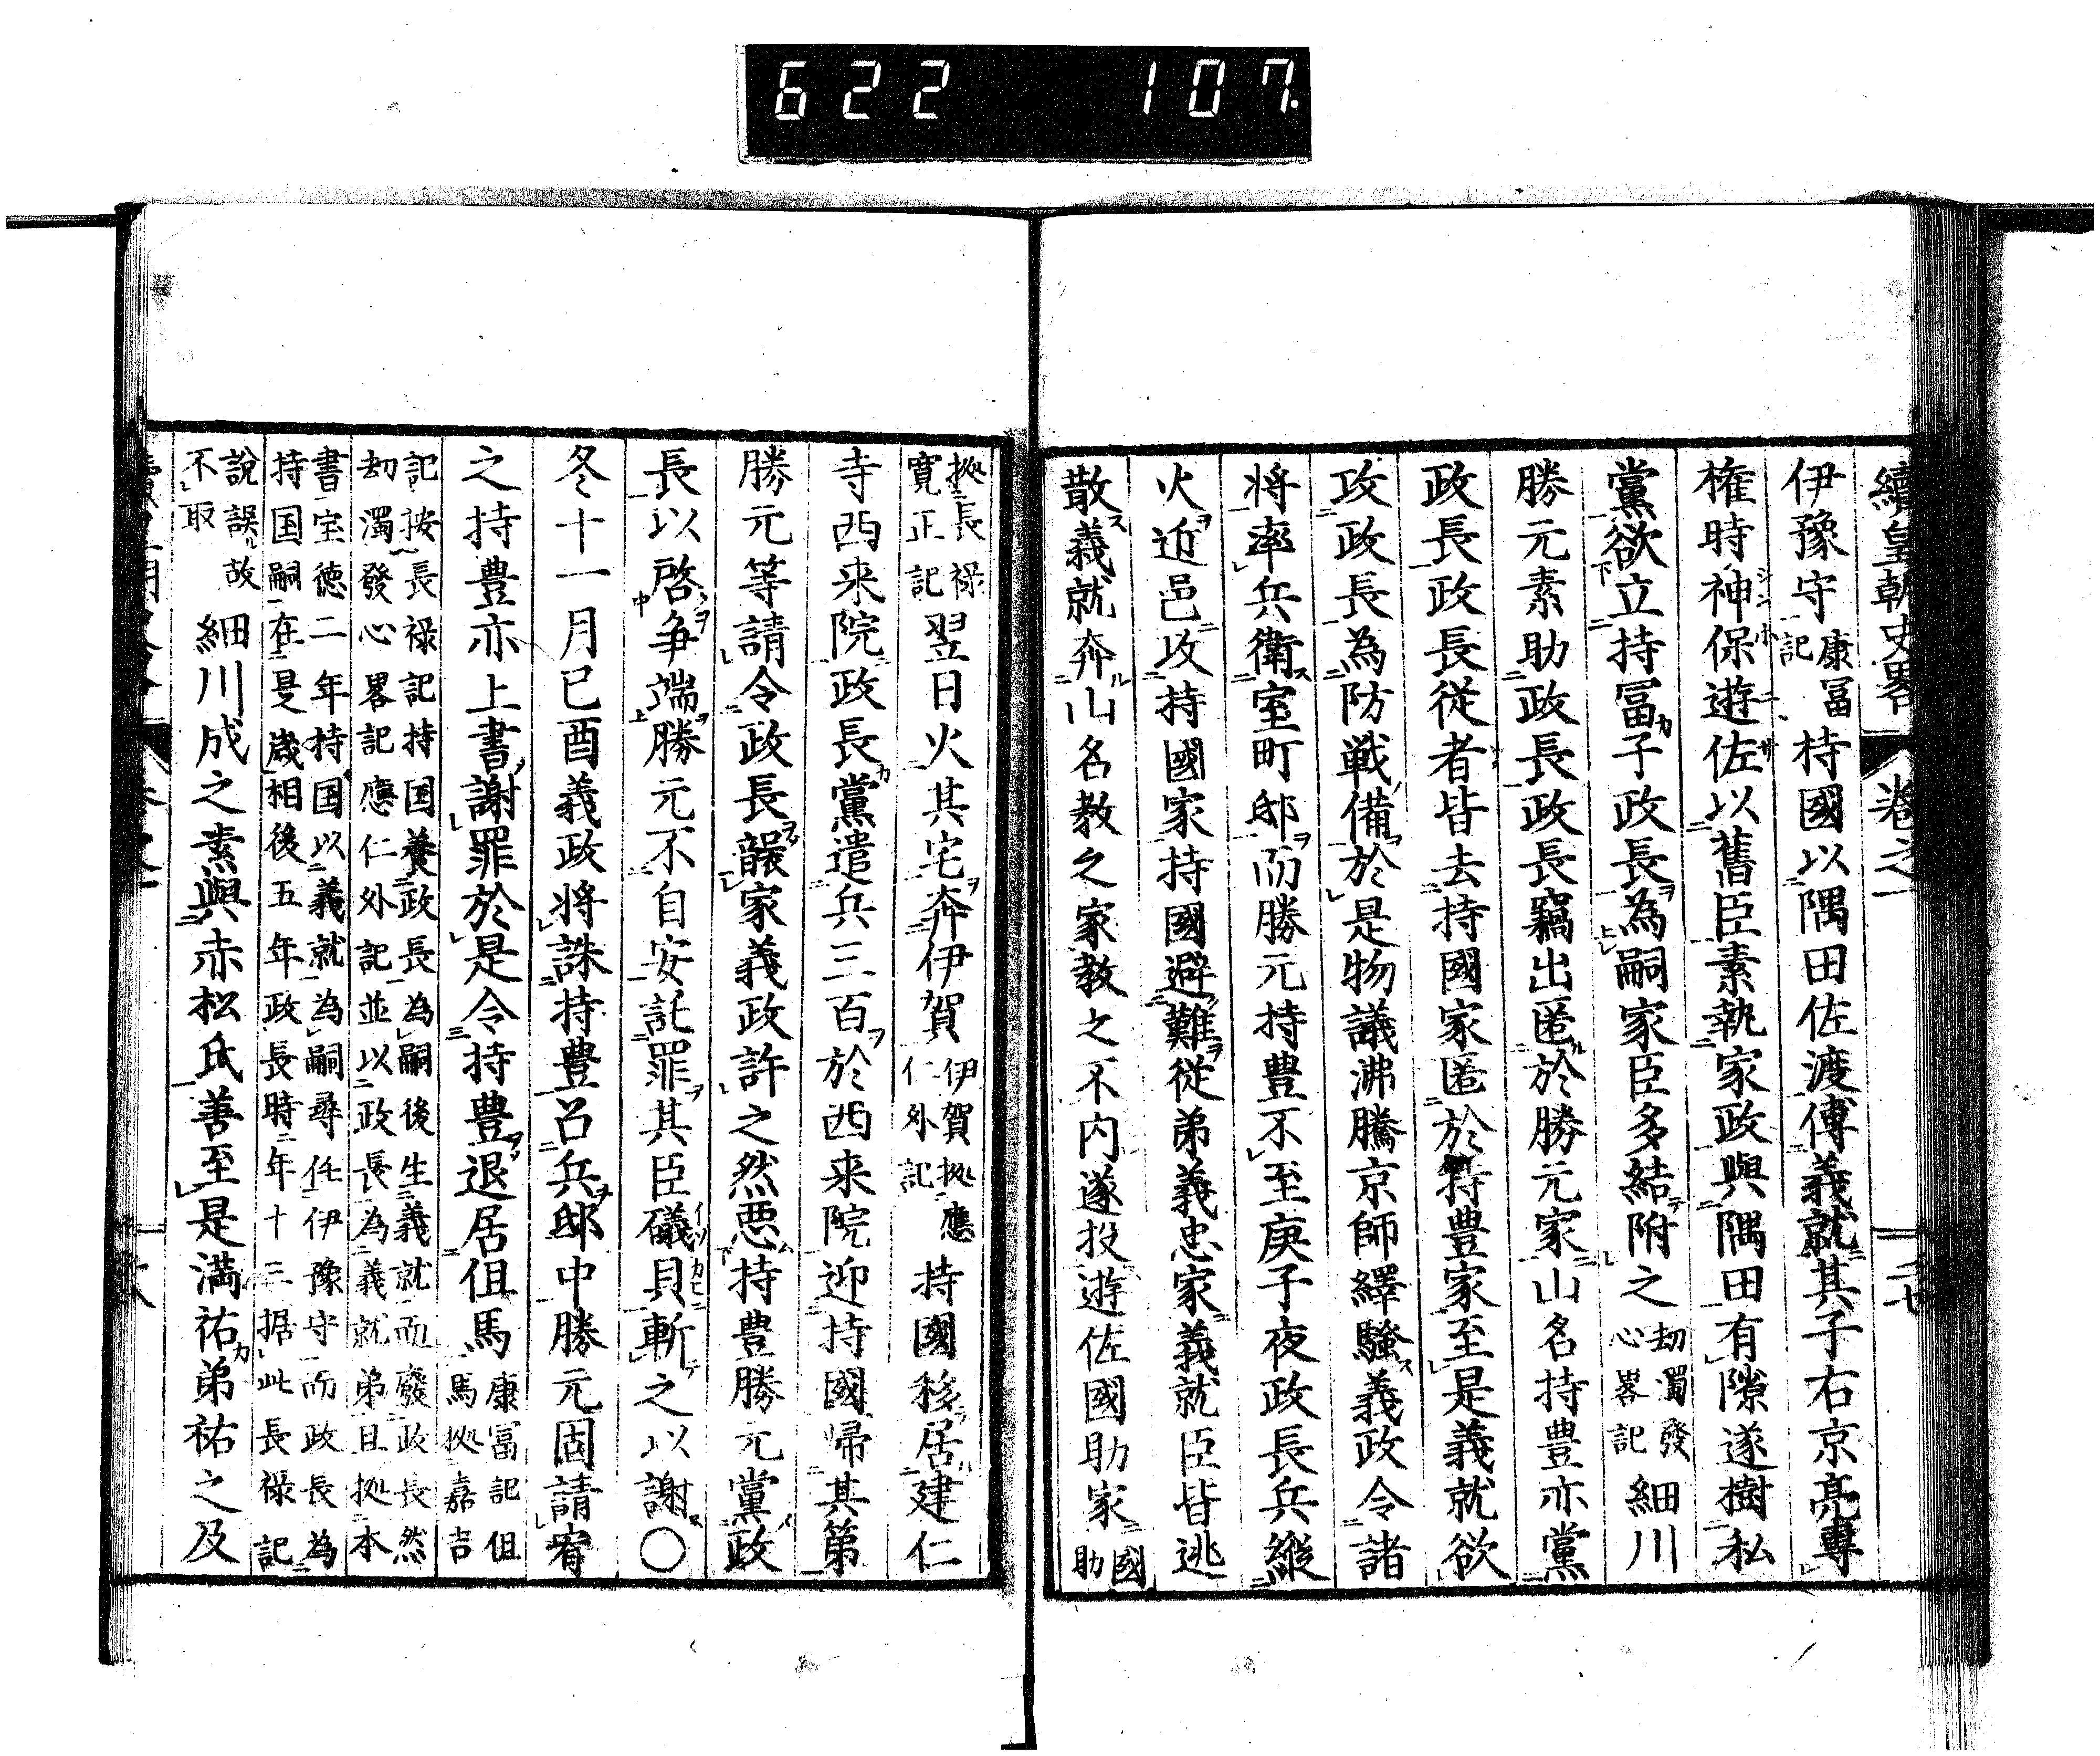 622 107.
續皇朝史畧 卷之一
伊豫守康冨記持國以隅田佐渡傅義就其子右京亮專
権時神保遊佐以舊臣素執家政與隅田有隙遂樹私
黨欲立持冨子政長為嗣家臣多結附之刧濁發心畧記細川
勝元素助政長政長竊出匿於勝元家山名持豊亦黨
政長政長従者皆去持國家匿於持豊家至是義就欲
攻政長為防戦備於是物議沸騰京師繹騷義政令諸
将率兵衛室町邸而勝元持豊不至庚子夜政長兵縦
火近邑攻持國家持國避難従弟義忠家義就臣皆逃
散義就奔山名教之家教之不内遂投遊佐國助家國助
拠長禄寛正記翌日火其宅奔伊賀伊賀拠應仁外記持國移居建仁
寺西来院政長黨遣兵三百於西来院迎持國帰其第
勝元等請令政長襲家義政許之然悪持豊勝元黨政
長以啓争端勝元不自安託罪其臣礒貝斬之以謝〇
冬十一月已酉義政将誅持豊召兵邸中勝元固請宥
之持豊亦上書謝罪於是令持豊退居伹馬康冨記伹馬拠嘉吉
記按長禄記持国養政長為嗣後生義就而廢政長然
刧濁發心畧記應仁外記並以政長為義就弟且拠本
書宝徳二年持国以義就為嗣尋任伊豫守而政長為
持国嗣在是歳相後五年政長時年十三据此長禄記
説誤故不取細川成之素與赤松氏善至是満祐弟祐之及